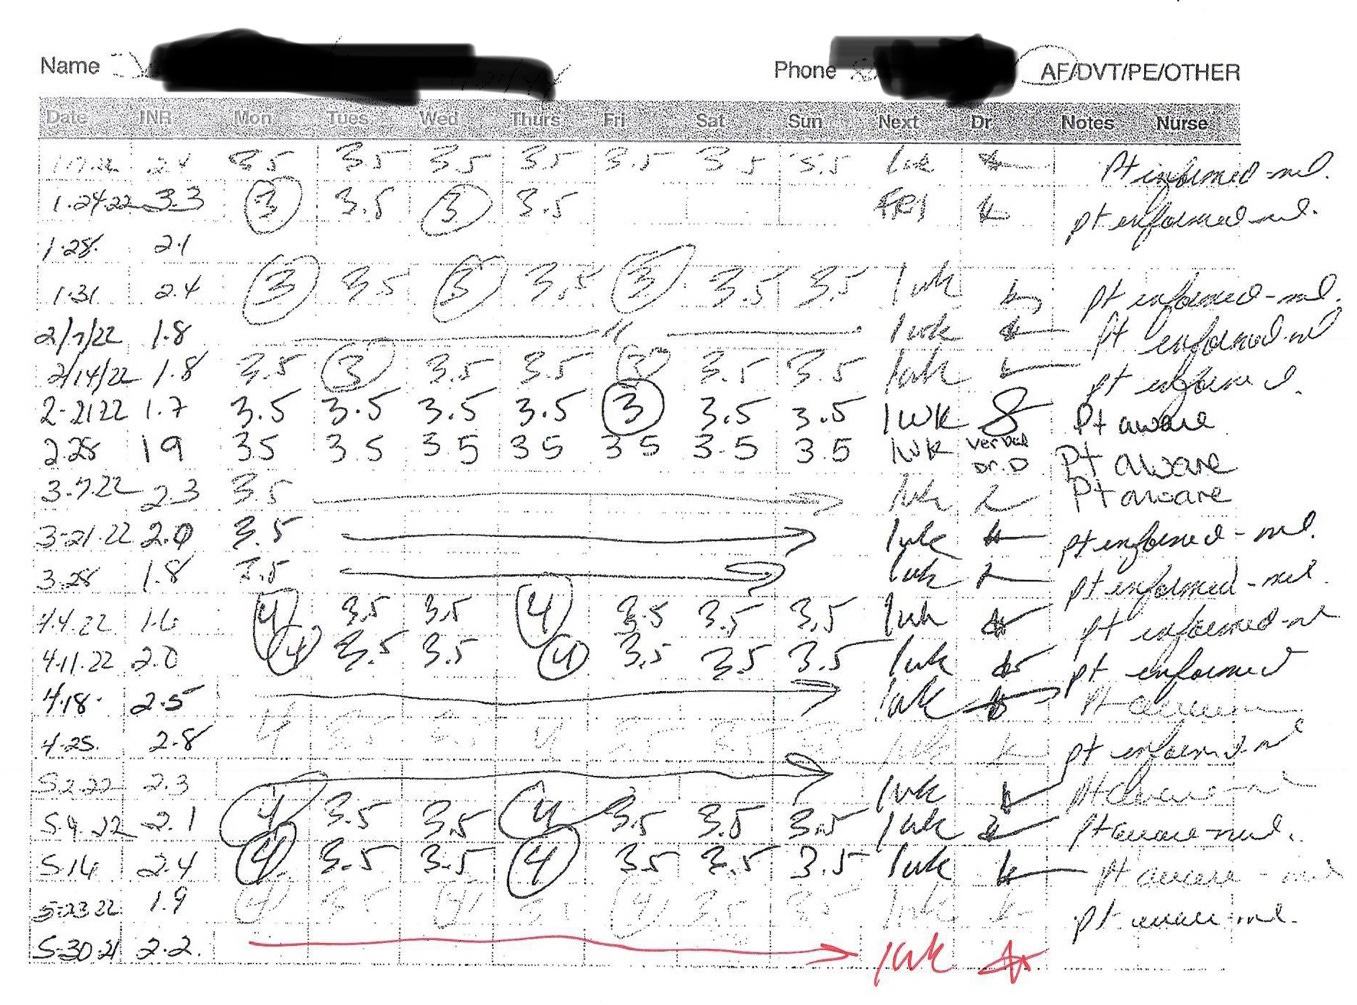 Name Phone AF/DVT/PE/OTHER
Date INR Mon Tues Wed Thurs Fri Sat Sun Next Dr Notes Nurse
2.4 3.5 3.5 3.5 3.5 3.5 3.5 3.5 1wk pt informed-ml.
1.24.22 3.3 3 3.5 3 3.5 FRI pt informed-ml.
1.28. 2.1
1.31 2.4 3 3.5 3 3.5 3 3.5 3.5 1wk pt informed-ml.
2/7/22 1.8 " 1wk pt informed-ml
2/14/22 1.8 3.5 3 3.5 3.5 3 3.5 3.5 1wk pt informed.
2-21 22 1.7 3.5 3.5 3.5 3.5 3 3.5 3.5 1WK Pt aware
2.28 19 35 3 5 3 5 3 5 3 5 3.5 3.5 1WK verbal Dr. D Pt aware
3.7.22 2.3 3.5 1wk Pt aware
3-21.22 2.0 3.5 1wk pt informed-ml.
3.28 1.8 3.5 1wk pt informed-ml.
4.4.22 1.6 4 3.5 3.5 4 3.5 3.5 3.5 1wk pt informed-ml
4.11.22 2.0 4 3.5 3.5 4 3.5 3.5 3.5 1wk pt informed
4.18. 2.5 1wk pt aware
4.25. 2.8 4 3.5 3.5 4 3.5 3.5 3.5 1wk pt informed-ml
5.2.22 2.3 1wk pt aware-ml
5.9.22 2.1 4 3.5 3.5 4 3.5 3.5 3.5 1wk pt aware-ml.
5.16 2.4 4 3.5 3.5 4 3.5 3.5 3.5 1wk pt aware-ml
5-23 22 1.9 4 3.5 4 3.5 4 3.5 3.5 1wk pt aware-ml.
5-30-21 2.2. 1wk